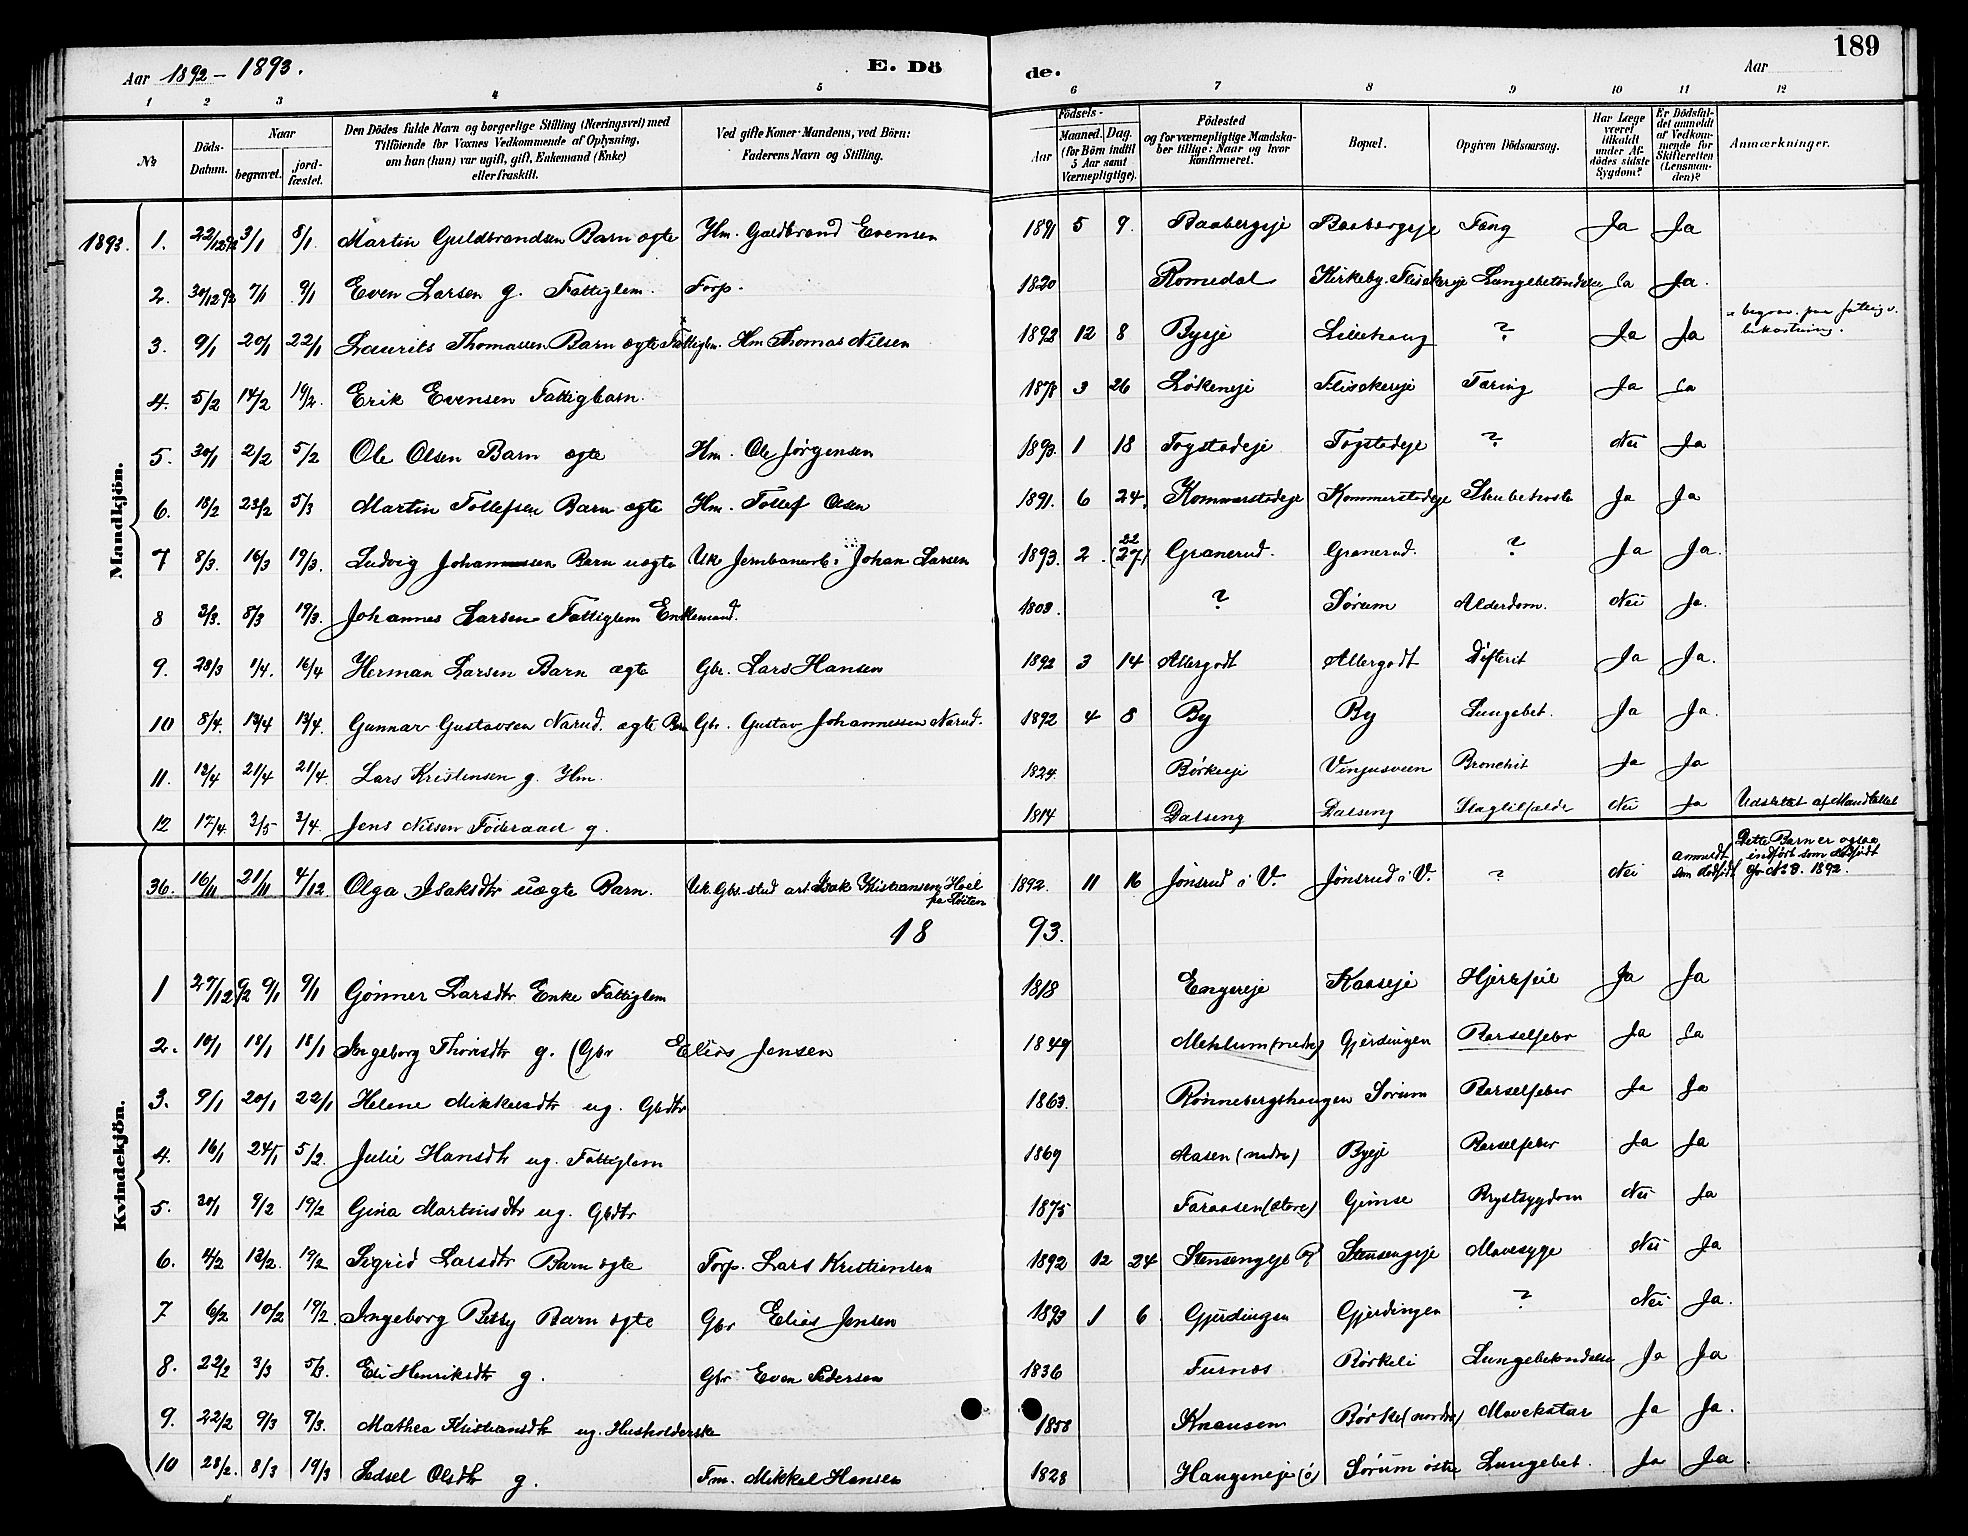 Aar 1892 - 1893.
E. Dö
de.
Aar
189
1 2 3 4 5 6 7 8 9 10 11 12
No
Döds-Datum.
Naar
begravet.
jord-fæstet.
Den Dödes fulde Navn og borgerlige Stilling (Næringsvei) med
Tilföiende for Voxnes Vedkommende af Oplysning,
om han (hun) var ugift, gift, Enkemand (Enke)
eller fraskilt.
Ved gifte Koner Mandens, ved Börn:
Faderens Navn og Stilling.
Födsels-
Aar
Maaned. Dag.
(for Börn indtil
5 Aar samt
Værnepligtige).
Födested
og for værnepligtige Mandska-
ber tillige: Naar og hvor
konfirmeret.
Bopæl.
Opgiven Dödsaarsag.
Har Læge
været
tilkaldt
under Af-
dödes sidste
Sygdom?
Er Dödsfal-
det anmeldt
af Vedkom-
mende for
Skifteretten
(Lensman-
den)?
Anmærkninger.
Mandkjön.
1893. 1. 22/12 92 3/1 8/1. Martin Guldbrandsen Barn ægte Hm. Guldbrand Evensen 1891 5 9. Baabergeje Baabergeje Tæng Ja Ja
2. 30/12 92 7/1 9/1 Even Larsen g. Fattiglem. Forp. 1820 Romedal Kirkeby. Flisakereje Lungebetændelse Ja Ja.
3. 9/1 20/1 22/1 Laurits Thomassen Barn ægte Fattiglm. Hm Thomas Nilsen 1892 12 8 Byeje Lillehaug ? Ja Ja × begrav. paa fattigv. bekostning.
4. 5/2 14/2 19/2. Erik Evensen Fattigbarn. 1878 3 26 Løkeneje Flisakereje Tæring Ja Ja
5. 30/1 2/2 5/2 Ole Olsen Barn ægte Hm. Ole Jørgensen 1893. 1 18 Togstadeje Togstadeje ? Nei Ja
6. 18/2 23/2 5/3 Martin Tollefsen Barn ægte Hm. Tollef Olsen 1891. 6 24. Kommerstadeje Kommerstadeje Strubehoste Ja Ja
7 8/3. 16/3 19/3. Ludvig Johannessen Barn uægte Uk Jernbanearb. Johan Larsen 1893. 2. 22 (27) Granerud. Granerud. ? Ja Ja.
8 3/3. 8/3 19/3. Johannes Larsen Fattiglem Enkemand. 1809. ? Sørum Alderdom. Nei Ja.
9. 28/3 1/4. 16/4 Herman Larsen Barn ægte Gbr. Lars Hansen 1892 3 14 Allergodt Allergodt Difterit Ja Ja.
10 8/4. 13/4 13/4. Gunnar Gustavsen Narud. ægte Barn Gbr. Gustav Johannessen Narud. 1892 4 8 By By Lungebet. Ja Ja.
11. 13/4 21/4 21/4 Lars Kristensen g. Hm. 1824. Børkeeje Vingusveen Bronchit Ja Ja
12 17/4 3/5 3/4. Jens Nilsen Føderaad g. 1814 Dalseng Dalseng Slagtilfælde Nei Ja Udslettet af Mandtallet
36. 16/11 21/11 4/12 Olga Isaksdtr uægte Barn. Uk. Gbr. Isak Kristiansen Hoel paa Løiten 1892. 11 16 Jønsrud i V. Jønsrud i V. ? Nei anmeldt som dødfødt Dette Barn er ogsaa indført som dødfødt No 3. 1892.
1893.
Kvindekjön.
1 27/12 92 9/1 9/1 Gønner Larsdtr Enke Fattiglem 1818 Engereje Kaaseje Hjertefeil Ja Ja
2. 10/1 18/1 18/1 Ingeborg Thorisdtr g. (Gbr Elias Jensen 1849 Mehlum (nedre) Gjerdingen Barselfeber Ja Ja
3. 9/1 20/1 22/1 Helene Mikkelsdtr ug. Gbdtr 1863. Rønnebergshaugen Sørum Barselfeber Ja Ja
4. 16/1 24/1 5/2. Julie Hansdtr ug. Fattiglem 1869 Aasen (nedre) Byeje Barselfeber Ja Ja
5. 30/1 9/2 19/2 Gina Martinsdtr ug. Gbdtr 1875 Faraasen (store) Gimse Brystsygdom Nei Ja
6. 4/2 13/2. 19/2 Sigrid Larsdtr Barn ægte Forp. Lars Kristiansen 1892 12 24 Stensengeje Stensengeje Mavesyge Nei Ja
7 6/2 10/2 19/2. Ingeborg Betsy Barn ægte Gbr Elias Jensen 1893 1 6 Gjerdingen Gjerdingen ? Nei Ja.
8. 22/2 3/3 5/3. Eli Henriksdtr g. Gbr Even Pedersen 1836 Furnæs Børkeli Lungebetændelse Ja Ja
9. 22/2 9/3 9/3. Mathea Kristiansdtr ug. Husholderske 1858 Knausen Børke (nordre) Mavekatar Ja Ja.
10 28/2. 8/3 19/3 Sidsel Olsdtr g. Fm. Mikkel Hansen 1828 Haugeneje (ø) Sørum østre Lungebet. Ja Ja.